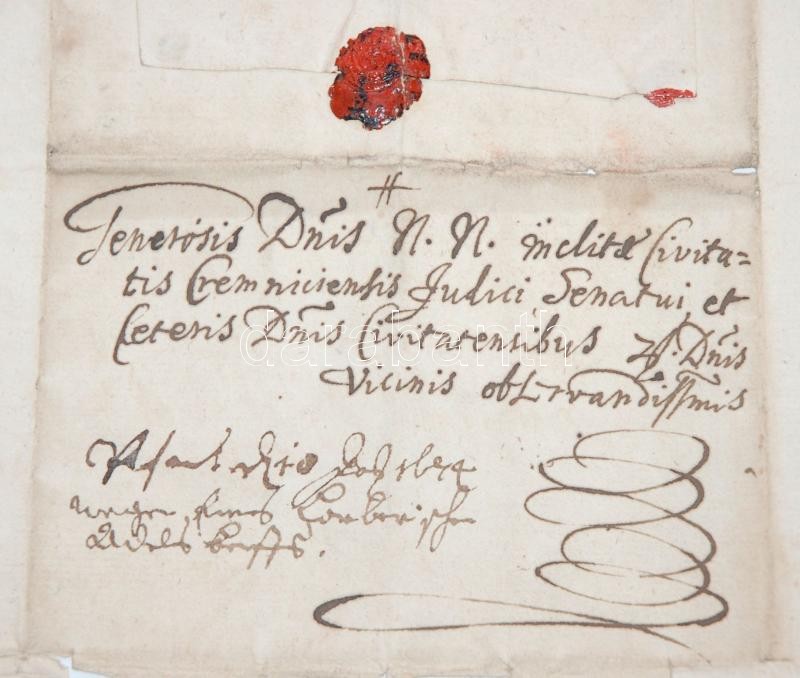 Generosis Dnis N. N. inclitæ Civita=
tis Cremniciensis Judici Senatui et
Ceteris Dnis Civitatensibus Dnis
Vicinis observandissimis
wegen eines
Adels
darabanth